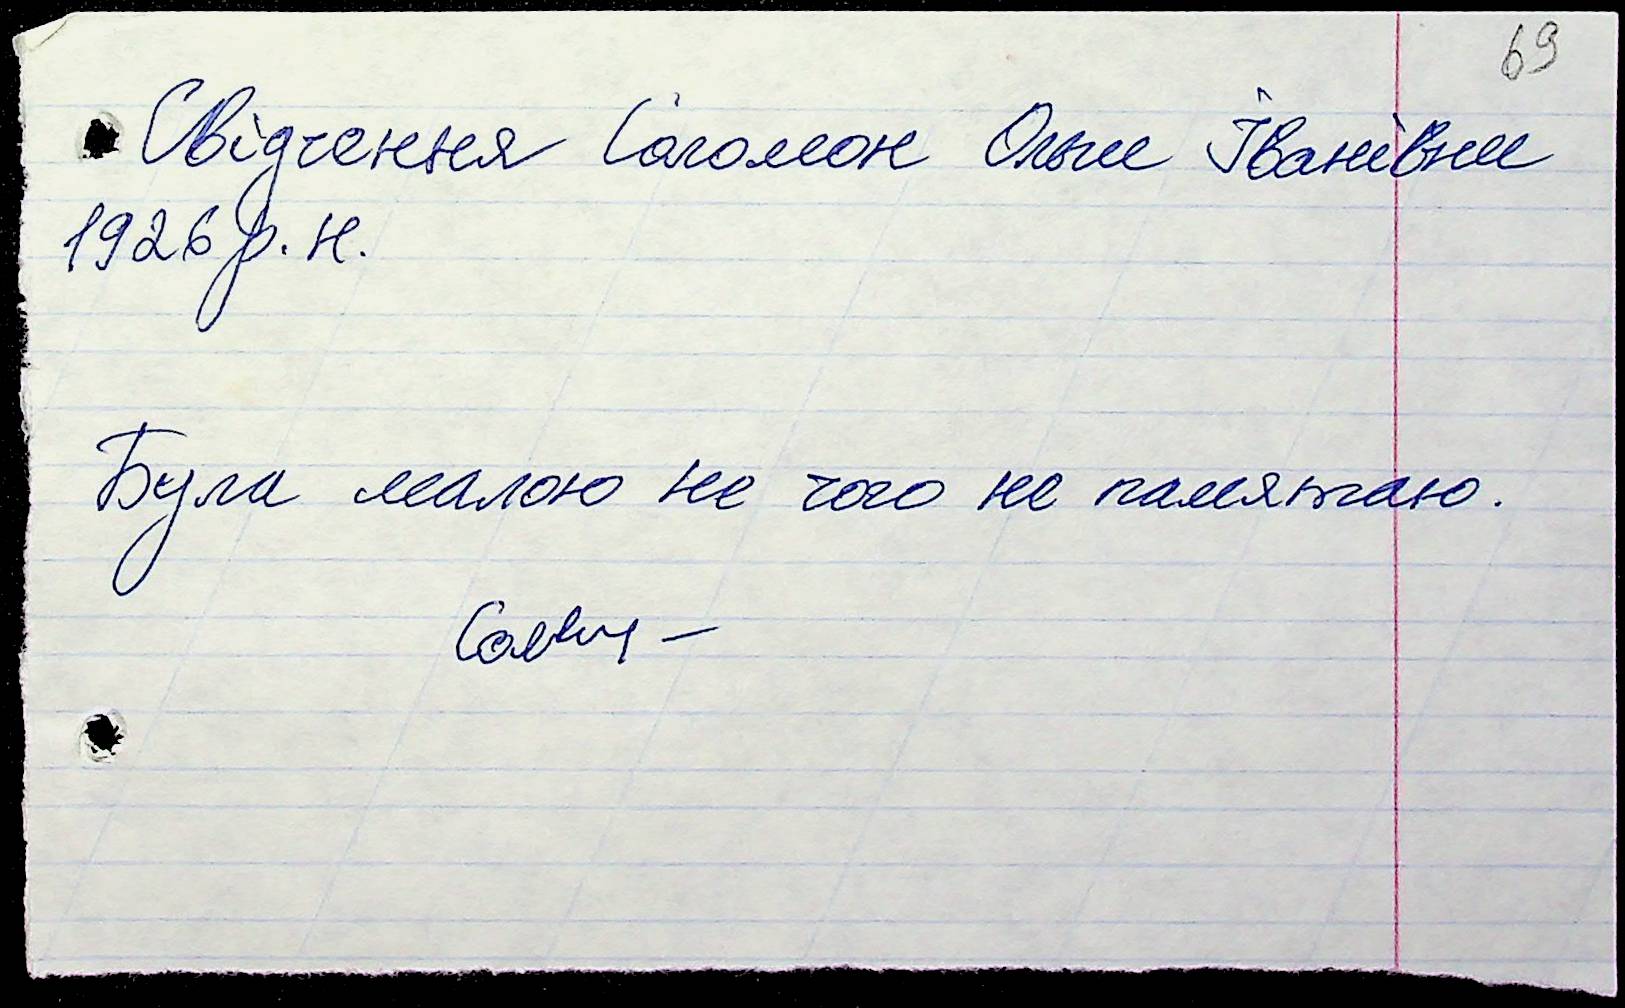 69
Свідчення Соломон Ольги Іванівни
1926 р. н.
Була малою не чого не памятаю.